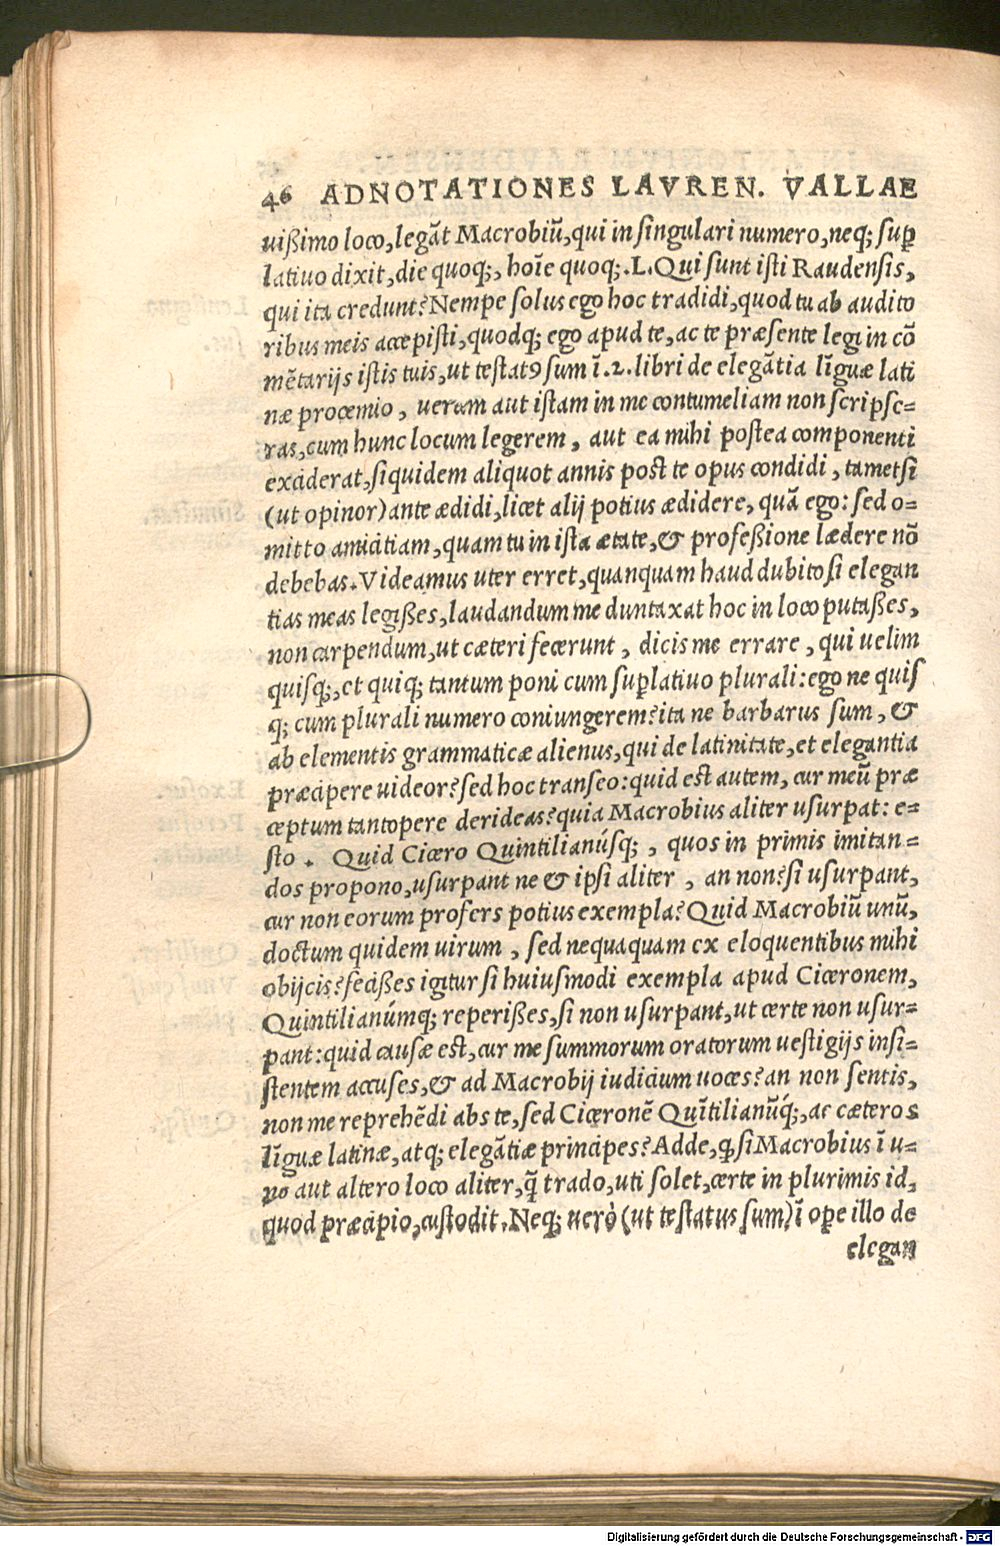 46 ADNOTATIONES LAVREN. VALLAE
uißimo loco, legāt Macrobiū, qui in singulari numero, neq; sup
latiuo dixit, die quoq;, hoīe quoq;. L. Qui sunt isti Raudensis,
qui ita credunt? Nempe solus ego hoc tradidi, quod tu ab audito
ribus meis accepisti, quodq; ego apud te, ac te præsente legi in cō
mētarijs istis tuis, ut testatꝰ sum ī. 2. libri de elegātia līguæ lati
næ proœmio, uerum aut istam in me contumeliam non scripse=
ras, cum hunc locum legerem, aut ea mihi postea componenti
exciderat, siquidem aliquot annis post te opus condidi, tametsi
(ut opinor) ante ædidi, licet alij potius ædidere, quā ego: sed o=
mitto amicitiam, quam tu in ista ætate, & profeßione lædere nō
debebas. Videamus uter erret, quanquam haud dubito si elegan
tias meas legißes, laudandum me duntaxat hoc in loco putaßes,
non carpendum, ut cæteri fecerunt, dicis me errare, qui uelim
quisq;, et quiq; tantum poni cum suplatiuo plurali: ego ne quis
q; cum plurali numero coniungerem? ita ne barbarus sum, &
ab elementis grammaticæ alienus, qui de latinitate, et elegantia
præcipere uideor? sed hoc transeo: quid est autem, cur meū præ
ceptum tantopere derideas? quia Macrobius aliter usurpat: e=
sto. Quid Cicero Quintilianúsq;, quos in primis imitan=
dos propono, usurpant ne & ipsi aliter, an non? si usurpant,
cur non eorum profers potius exempla? Quid Macrobiū unū,
doctum quidem uirum, sed nequaquam ex eloquentibus mihi
obijcis? fecißes igitur si huiusmodi exempla apud Ciceronem,
Quintilianúmq; reperißes, si non usurpant, ut certe non usur=
pant: quid causæ est, cur me summorum oratorum uestigijs insi=
stentem accuses, & ad Macrobij iudicium uoces? an non sentis,
non me reprehēdi abs te, sed Ciceronē Quītilianūq́;, ac cæteros
līguæ latinæ, atq; elegātiæ principes? Adde, ꝙ si Macrobius ī u=
no aut altero loco aliter, q̄ trado, uti solet, certe in plurimis id,
quod præcipio, custodit. Neq; uerò (ut testatus sum) ī ope illo de
elegan
Digitalisierung gefördert durch die Deutsche Forschungsgemeinschaft - DFG